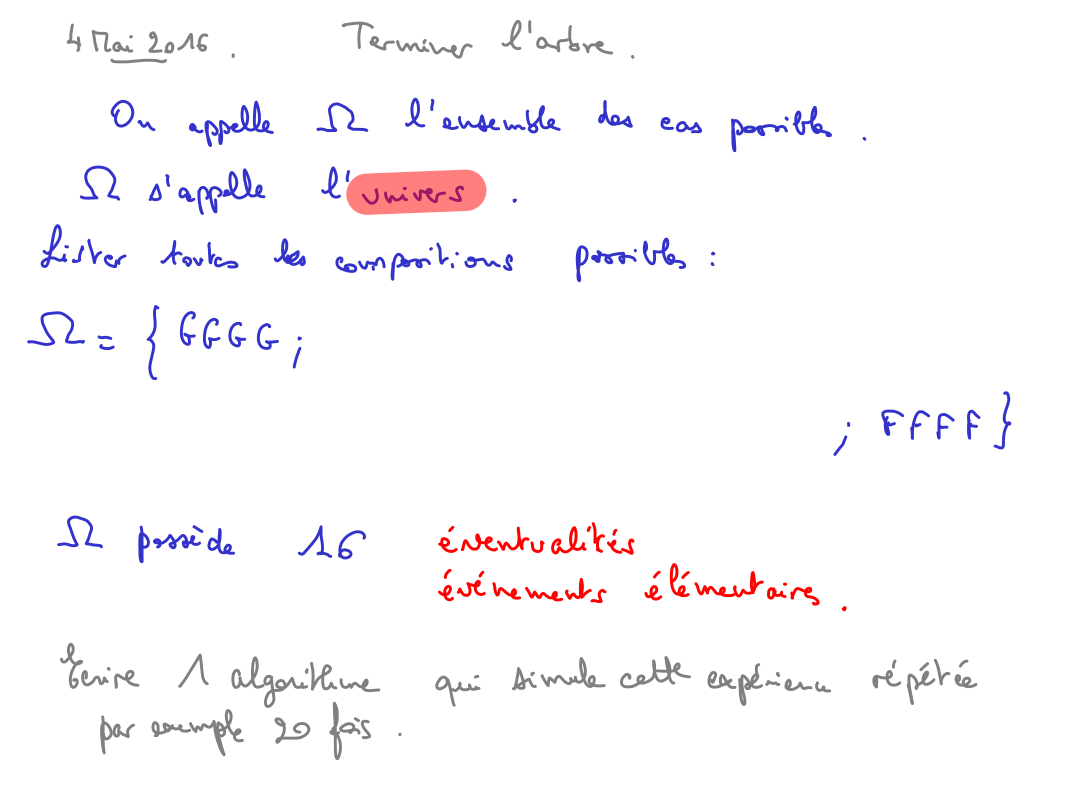 4 Mai 2016. Terminer l'arbre.
On appelle Ω l'ensemble des cas possibles.
Ω s'appelle l'univers.
Lister toutes les compositions possibles :
Ω = { GGGG ;
; FFFF }
Ω possède 16 éventualités
événements élémentaires.
Ecrire 1 algorithme qui simule cette expérience répétée
par exemple 20 fois.